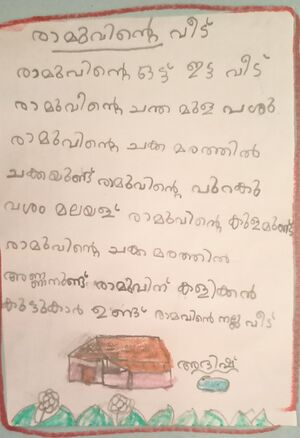 രാമുവിന്റെ വീട്
രാമുവിന്റെ ഓട്ട് ഇട്ട വീട്
രാമുവിന്റെ ചന്ത മുള പശു
രാമുവിന്റെ ചക്ക മരത്തിൽ
ചക്കയുണ്ട് രാമുവിന്റെ പുറകു
വശം മലയാണ് രാമുവിന്റെ കുളമുണ്ട്
രാമുവിന്റെ ചക്ക മരത്തിൽ
അണ്ണനുണ്ട് രാമുവിന് കളിക്കൻ
കുട്ടുകാർ ഉണ്ട് രാമവിൻ നല്ല വീട്
അദിഷ്